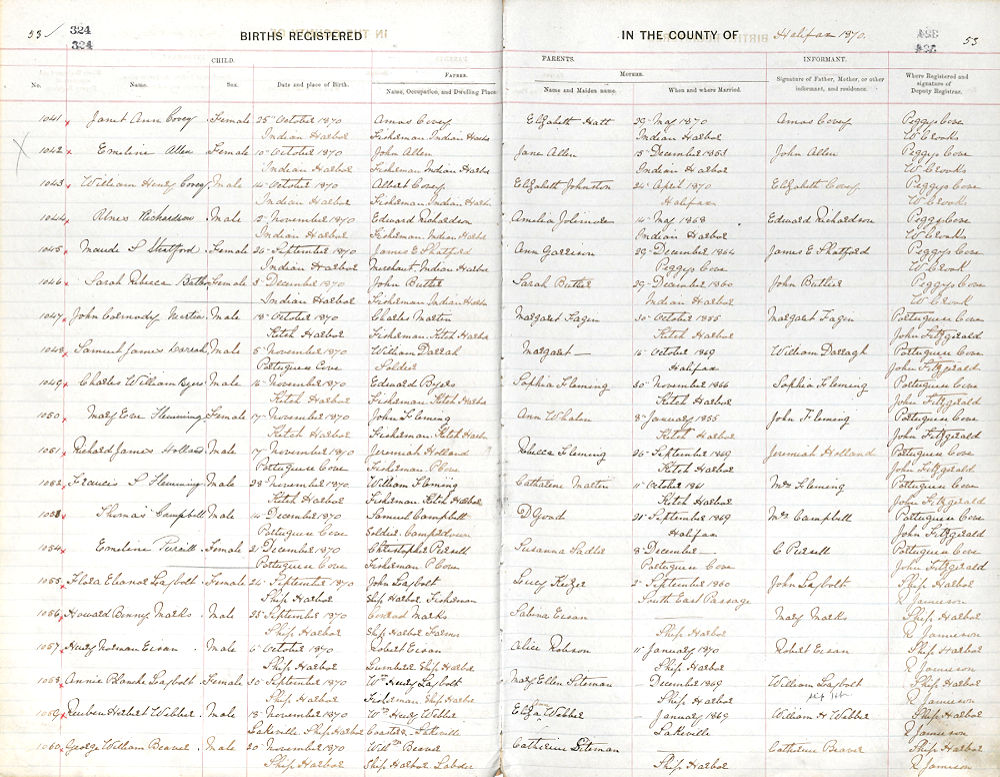 53 / 324 BIRTHS REGISTERED IN THE COUNTY OF Halifax 1870. 53
324
CHILD. PARENTS. INFORMANT.
FATHER. MOTHER.
No. Name. Sex. Date and place of Birth. Name, Occupation, and Dwelling Place Name and Maiden name. When and where Married. Signature of Father, Mother, or other informant, and residence. Where Registered and signature of Deputy Registrar.
1041 Janet Ann Covey Female 25 October 1870 Amos Covey Elizabeth Hatt 29 May 1870 Amos Covey Peggys Cove
Indian Harbor Fisherman Indian Harbor Indian Harbor W Crooks
1042 Emeline Allen Female 10 October 1870 John Allen Jane Allen 15 December 1853 John Allen Peggys Cove
Indian Harbor Fisherman Indian Harbor Indian Harbor W Crooks
1043 William Henry Covey Male 14 October 1870 Albert Covey Elizabeth Johnston 24 April 1870 Elizabeth Covey Peggys Cove
Indian Harbor Fisherman Indian Harbor Halifax W Crooks
1044 Richardson Male 12 November 1870 Edward Richardson Amelia Johnson 14 May 1868 Edward Richardson Peggys Cove
Indian Harbor Fisherman Indian Harbor Indian Harbor W Crooks
1045 Maude S Stratford Female 24 September 1870 James E Shatford Ann Garrison 29 December 1864 James E Shatford Peggys Cove
Indian Harbor Merchant Indian Harbor Peggys Cove W Crook
1046 Sarah Rebecca Female 5 December 1870 John Butler Sarah Butler 29 December 1860 John Butler Peggys Cove
Indian Harbor Fisherman Indian Harbor Indian Harbor W Crook
1047 John Carmody Martin Male 18 October 1870 Charles Martin Margaret Fagen 30 October 1855 Margaret Fagen Portuguese Cove
Ketch Harbor Fisherman Ketch Harbor Ketch Harbor John Fitzgerald
1048 Samuel James Male 5 November 1870 William Darrah Margaret — 16 October 1869 William Darragh Portuguese Cove
Portuguese Cove Soldier Halifax John Fitzgerald
1049 Charles William Byers Male 16 November 1870 Edward Byers Sophia Fleming 30 November 1866 Sophia Fleming Portuguese Cove
Ketch Harbor Fisherman Ketch Harbor Ketch Harbor John Fitzgerald
1050 Mary Eva Flemming Female 17 November 1870 John Fleming Ann Whalen 8 January 1855 John Fleming Portuguese Cove
Ketch Harbor Fisherman Ketch Harbor Ketch Harbor John Fitzgerald
1051 Richard James Holland Male 17 November 1870 Jeremiah Holland Rebecca Fleming 26 September 1869 Jeremiah Holland Portuguese Cove
Portuguese Cove Fisherman P Cove Ketch Harbor John Fitzgerald
1052 Francis P Flemming Male 28 November 1870 William Fleming Catharine Martin 11 October 186 Mrs Fleming Portuguese Cove
Ketch Harbor Fisherman Ketch Harbor Ketch Harbor John Fitzgerald
1053 Thomas Campbell Male 14 December 1870 Samuel Campbell D Goud 21 September 1869 Mrs Campbell Portuguese Cove
Portuguese Cove Soldier Camperdown Halifax John Fitzgerald
1054 Emeline Purcill Female 21 December 1870 Christopher Purcell Susanna Sadler 8 December — C Purcell Portuguese Cove
Portuguese Cove Fisherman P Cove Portuguese Cove John Fitzgerald
1055 Flora Eleanor Laybolt Female 24 September 1870 John Laybolt Lucy Keizer 2 September 1860 John Laybolt Ship Harbor
Ship Harbor Ship Harbor Fisherman South East Passage R Jamieson
1056 Howard Benny Marks Male 25 September 1870 Conrad Marks Sabena Eisan — Mary Marks Ship Harbor
Ship Harbor Ship Harbor Farmer Ship Harbor R Jamieson
1057 Henry Norman Eisan Male 6 October 1870 Robert Eisan Alice Robson 11 January 1870 Robert Eisan Ship Harbor
Ship Harbor Lumberer Ship Harbor Ship Harbor R Jamieson
1058 Annie Blanche Laybolt Female 30 September 1870 Wm Henry Laybolt Mary Ellen Siteman — December 1869 William Laybolt Ship Harbor
Ship Harbor Fisherman Ship Harbor Ship Harbor R Jamieson
1059 Reuben Herbert Webber Male 18 November 1870 Wm Henry Webber Eliza Webber — January 1869 William H Webber Ship Harbor
Lakeville Ship Harbor Coaster Lakeville Lakeville R Jamieson
1060 George William Beaver Male 20 November 1870 Willm Beaver Catherine Siteman — Catherine Beaver Ship Harbor
Ship Harbor Ship Harbor Laborer Ship Harbor R Jamieson